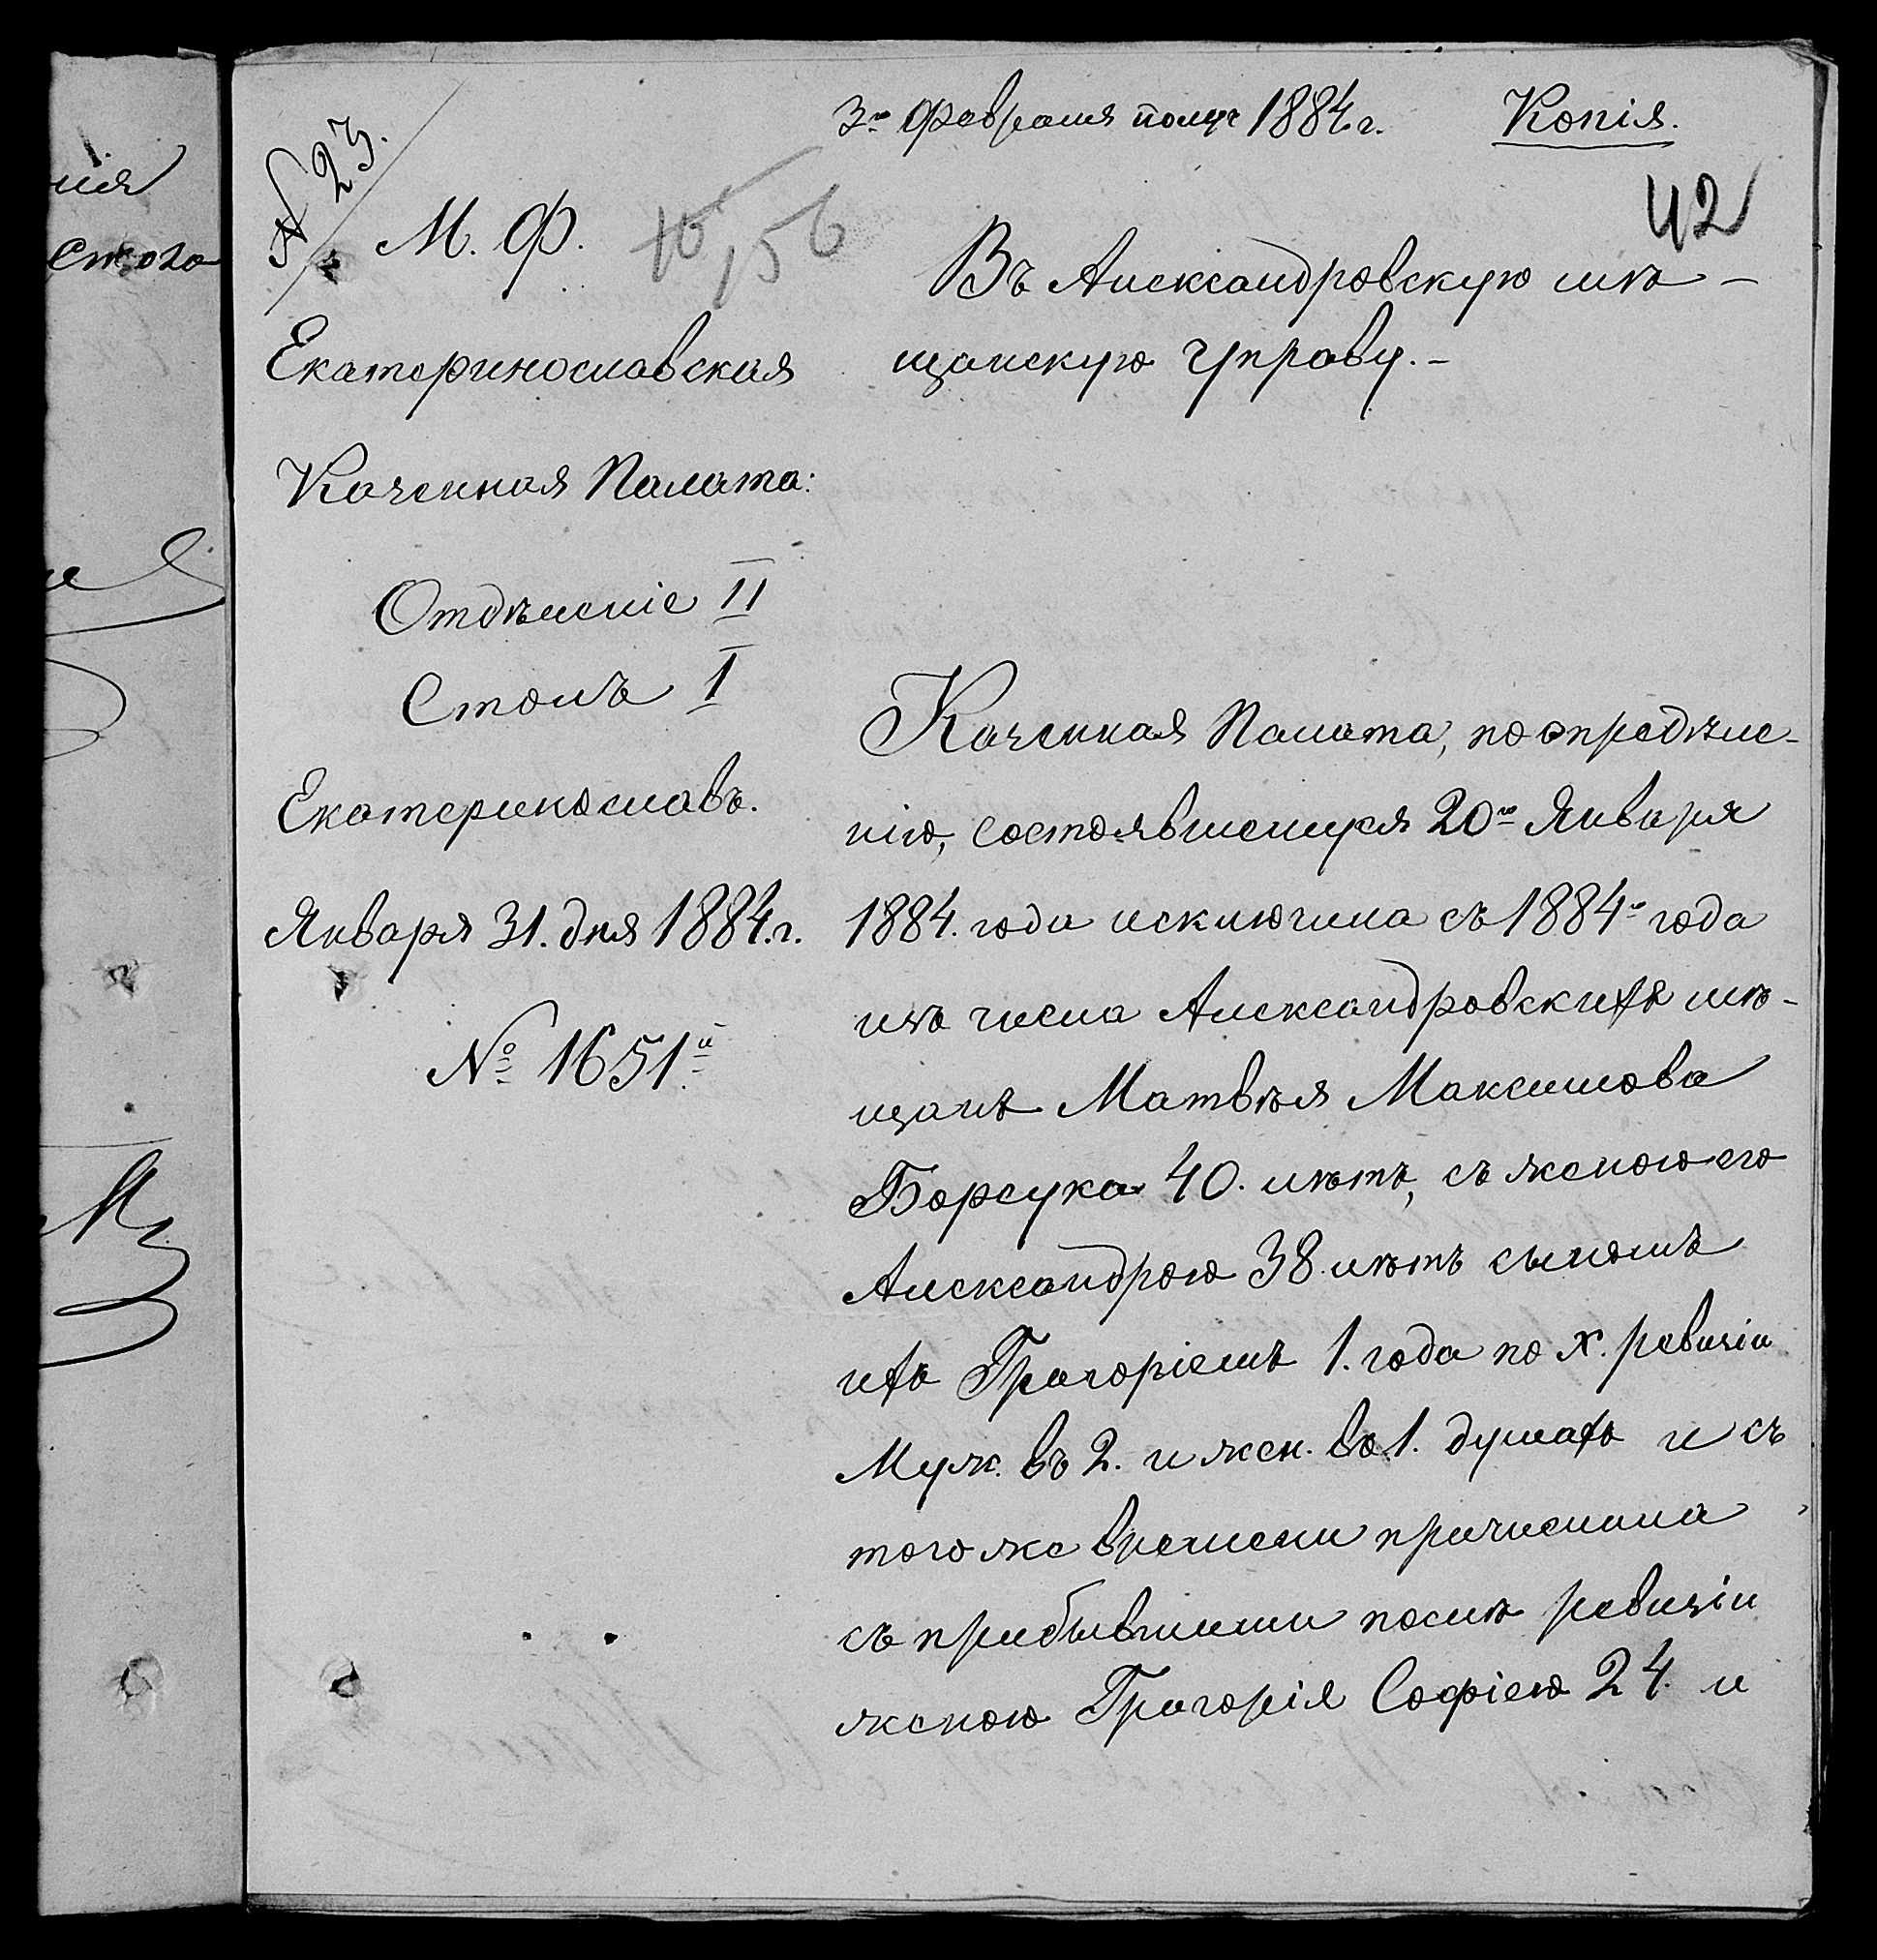 3го Февраля получ 1884 г. Копія.
№ 23.
42
М. Ф.
56
Екатеринославская
Казенная Палата.
Отдѣленіе II
Столъ I
Екатеринославъ.
Января 31. дня 1884. г.
№ 1651й
Въ Александровскую мѣ-
щанскую Управу.-
Казенная Палата, по опредѣле-
нію, состоявшемуся 20го Января
1884. года исключила съ 1884го года
изъ числа Александровскихъ мѣ-
щанъ Матвѣя Максимова
Борсука 40. лѣтъ, съ женою его
Александрою 38. лѣтъ сыномъ
ихъ Григоріемъ 1. года по X. ревизіи
Муж. въ 2. и жен. въ 1. душахъ и съ
того же времени причислила
съ прибывшими послѣ ревизіи
женою Григорія Софіею 24. и
ия
ского